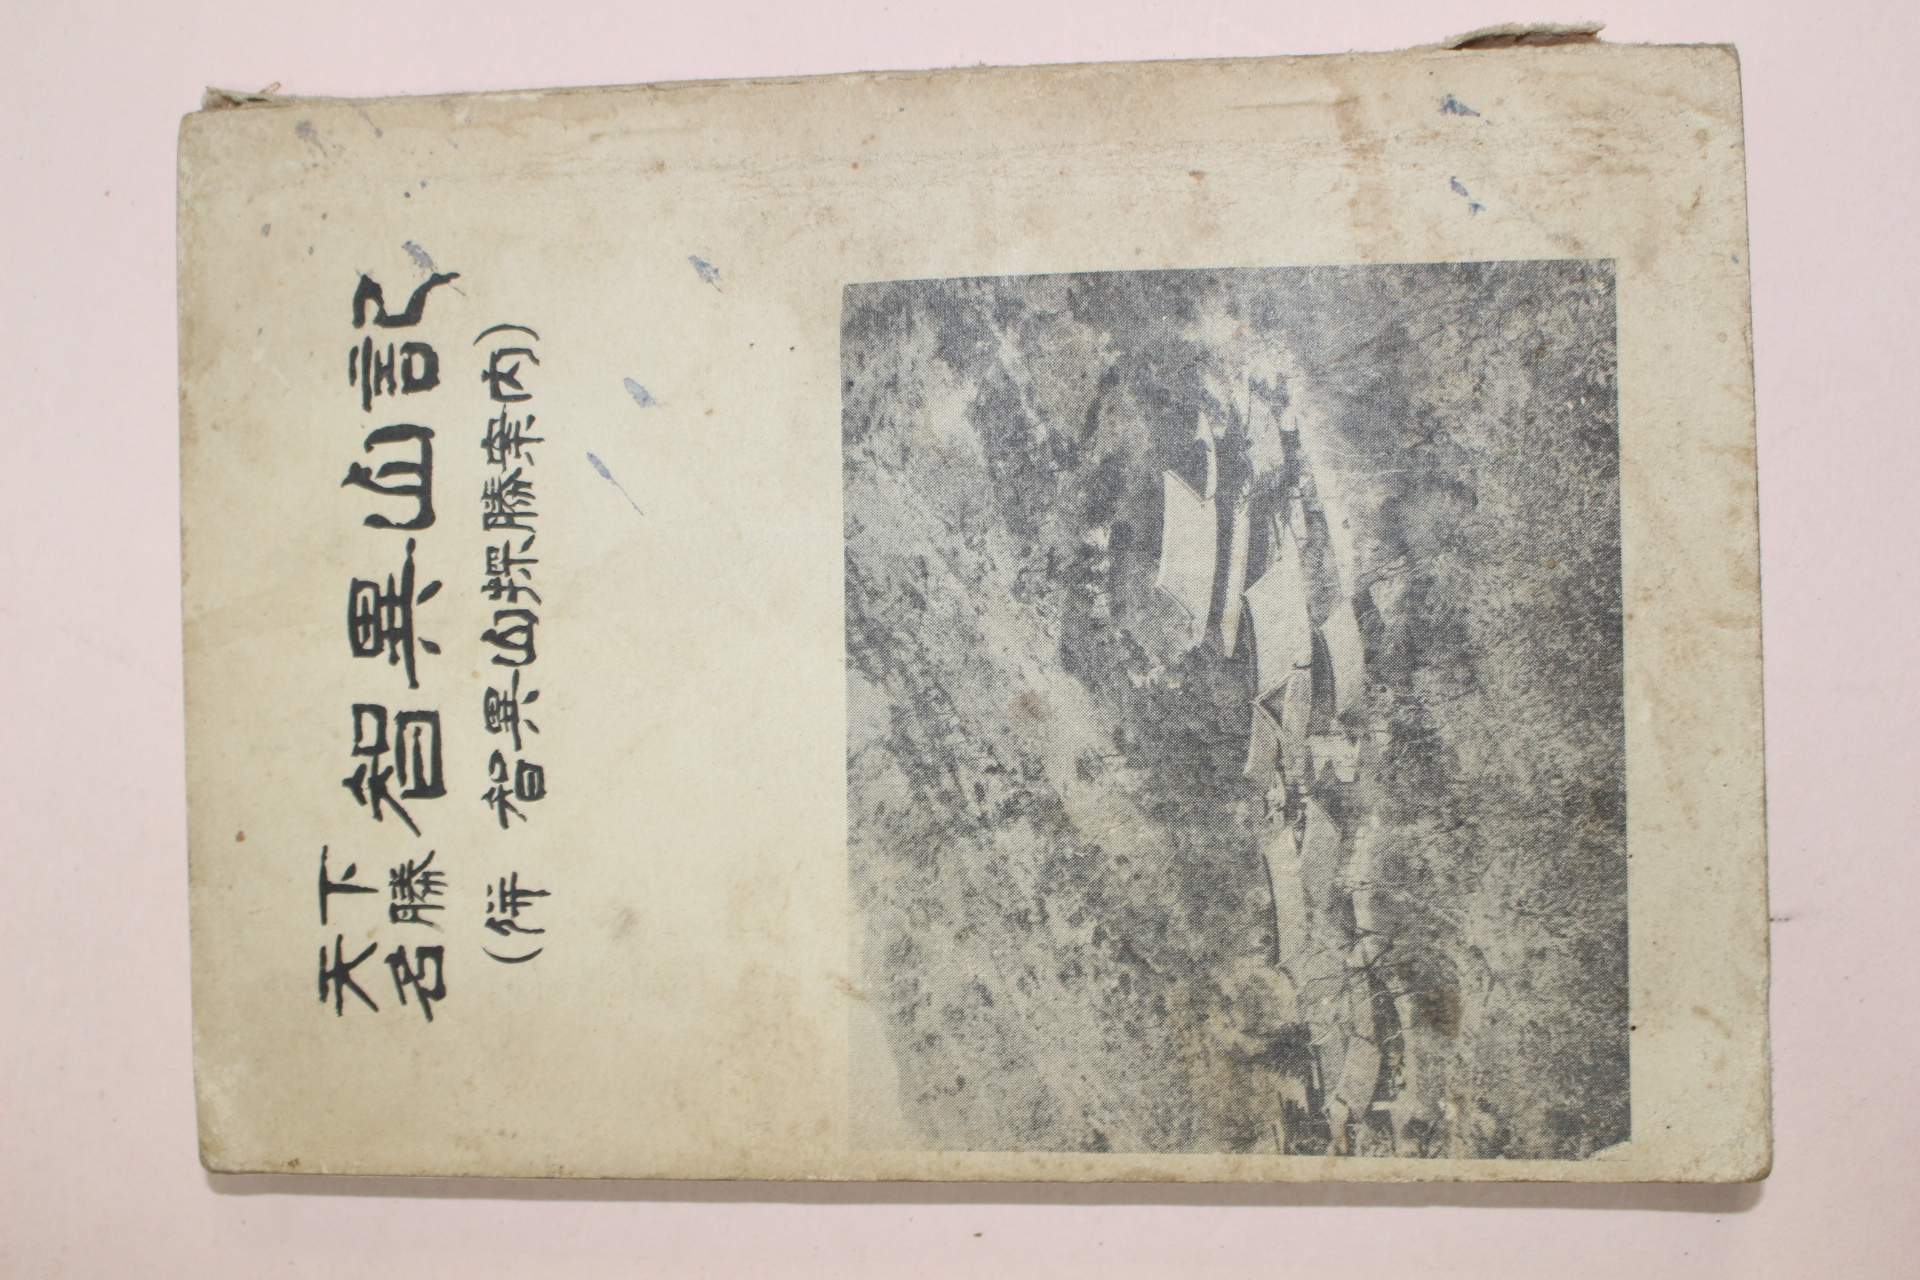 天下
名勝
智異山記
(倂 智異山探勝案內)